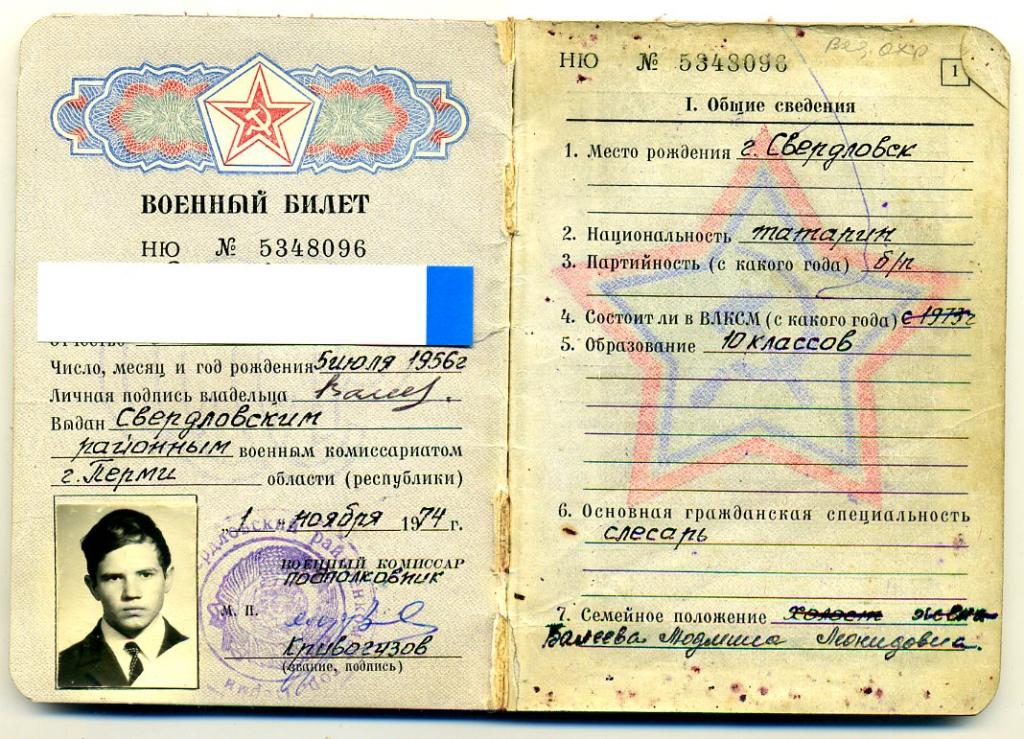 ВОЕННЫЙ БИЛЕТ
НЮ № 5348096
Число, месяц и год рождения 5 июля 1956г
Личная подпись владельца Валеев.
Выдан Свердловским
районным военным комиссариатом
г. Перми области (республики)
"1" ноября 1974 г.
ВОЕННЫЙ КОМИССАР
подполковник
М. П.
Кривогузов
(звание, подпись)
НЮ № 5348096
1
I. Общие сведения
1. Место рождения г. Свердловск
2. Национальность татарин
3. Партийность (с какого года) б/п
4. Состоит ли в ВЛКСМ (с какого года) с 1973г
5. Образование 10 классов
6. Основная гражданская специальность
слесарь
7. Семейное положение холост женат
Валеева Людмила